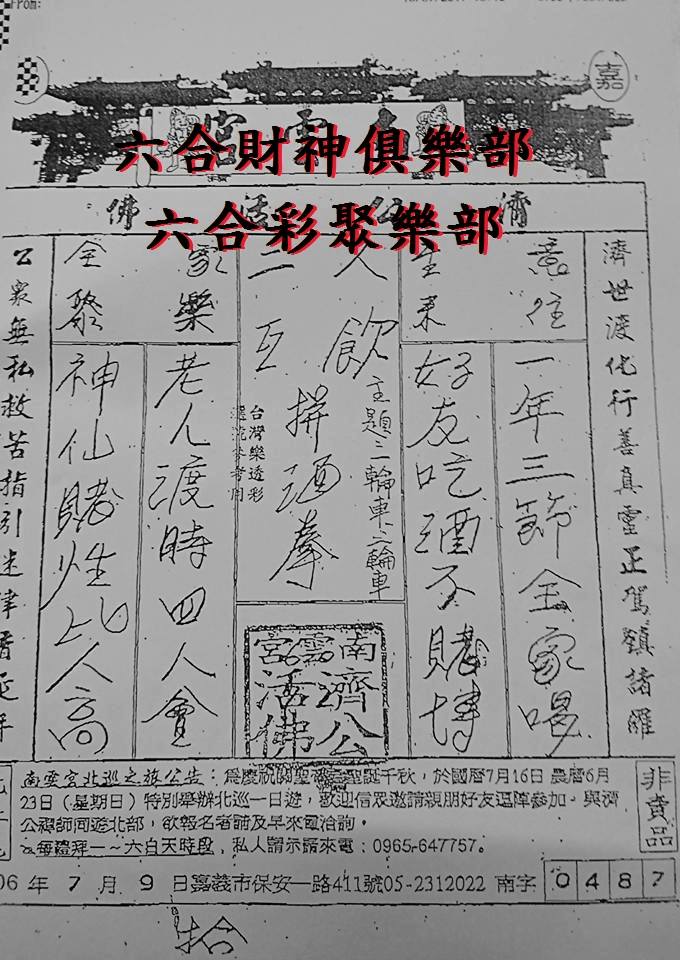 From:
嘉
宮
六合財神俱樂部
濟
活
佛
六合彩聚樂部
濟世渡化行善真靈正駕鎮諸羅
意
往
一年三節全家喝
來
好友吃酒不賭博
二人
互飲
拼酒拳
主題:二輪車、二輪車
台灣樂透彩
家樂
老人渡時四人會
全聚
神仙賭性比人高
公眾無私救苦指引迷津
南雲宮
濟公
活佛
南雲宮北巡之旅公告:爲慶祝關聖帝君聖誕千秋,於國曆7月16日 農曆6月
23日(星期日)特別舉辦北巡一日遊,歡迎信眾邀請親朋好友逗陣參加。與濟
公禪師同遊北部,欲報名者請及早來電洽詢。
每禮拜一~六白天時段,私人請示請來電:0965-647757。
非賣品
06年 7 月 9 日嘉義市保安一路411號05-2312022 南字 0487
拾